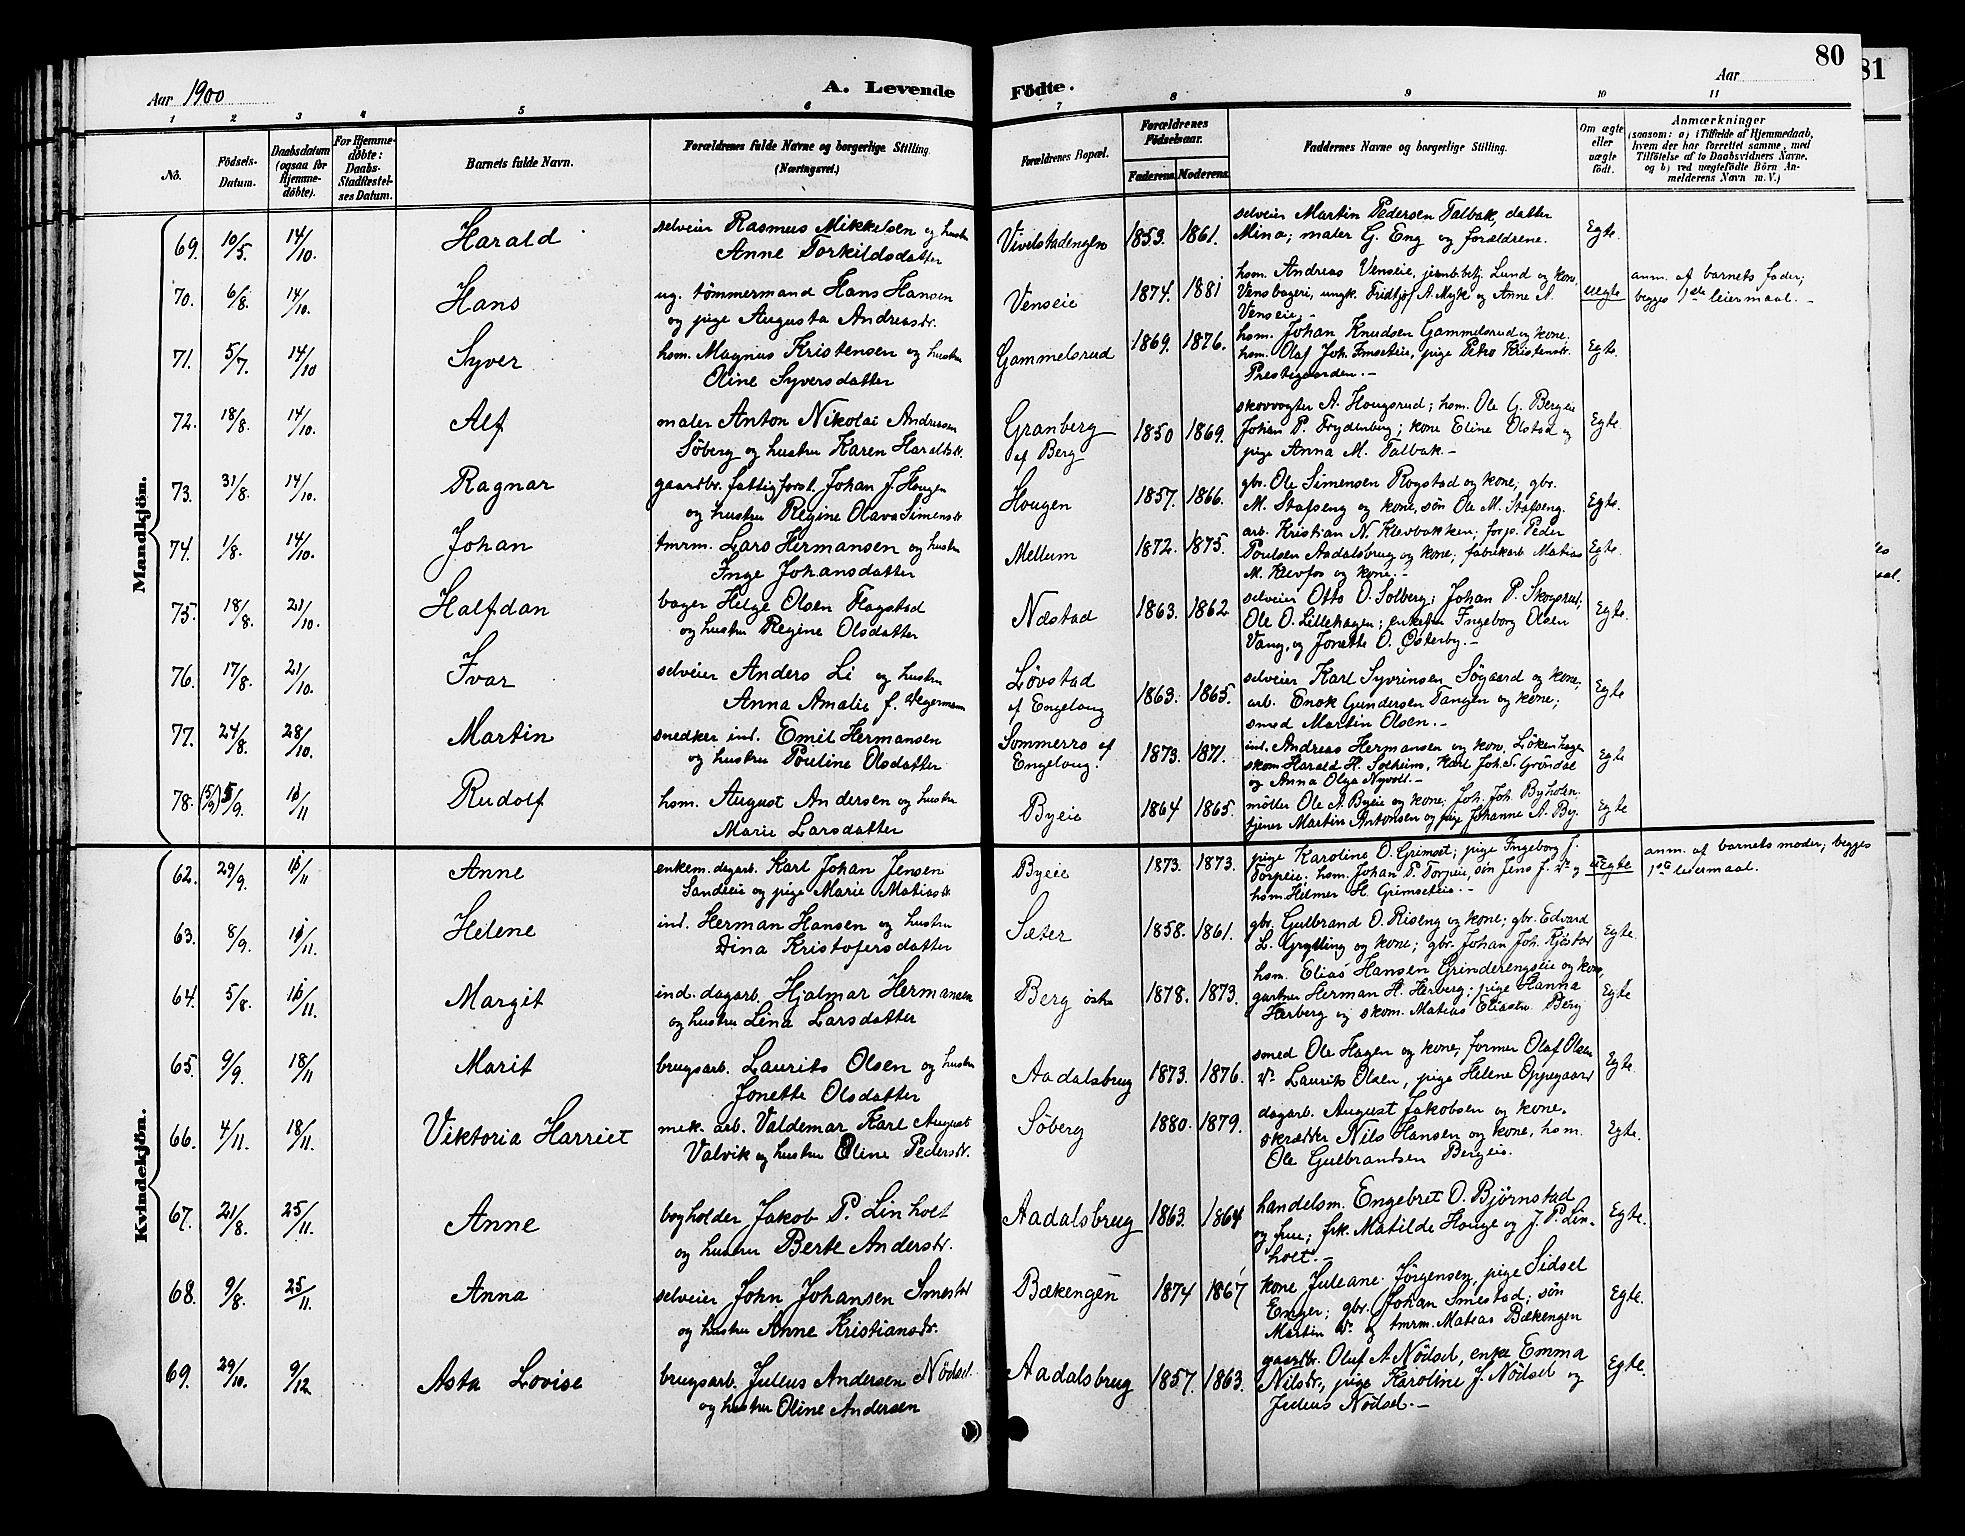 80
81
Aar 1900
A. Levende
Födte.
Aar
1 2 3 4 5 6 7 8 9 10 11
No.
Födsels-Datum.
Daabsdatum (ogsaa for Hjemmedöbte).
For Hjemmedöbte: Daabs-Stadfestelses Datum.
Barnets fulde Navn.
Forældrenes fulde Navne og borgerlige Stilling. (Næringsvei.)
Forældrenes Bopæl.
Forældrenes Födselsaar.
Faderens. Moderens.
Faddernes Navne og borgerlige Stilling.
Om ægte eller uægte födt.
Anmærkninger
(saasom: a) i Tilfælde af Hjemmedaab, hvem der har forrettet samme, med Tilföielse af to Daabsvidners Navne, og b) ved uægtefödte Börn Anmelderens Navn m. V.)
Mandkjön.
69. 10/5. 14/10. Harald selveier Rasmus Mikkelsen og hustru Vivelstadengen 1853. 1861. selveier Martin Pedersen Talbak, datter Egte.
Anne Torkildsdatter Mina; maler G. Eng og forældrene.
70. 6/8. 14/10. Hans ug. tømmermand Hans Hansen Venseie 1874. 1881 hsm. Andreas Venseie, jernb.betj. Lund og kone Uegte anm. af barnets fader;
og pige Augusta Andreasdr. Vensbageri, ungk. Fridtjof A. Myk og Anne A. begges 1ste leiermaal. -
Venseie. -
71. 5/7. 14/10 Syver hsm. Magnus Kristensen og hustru Gammelsrud 1869. 1876. hsm. Johan Knudsen Gammelsrud og kone; Egte.
Oline Syversdatter hsm. Olaf Joh. pige Petra Kristensdr.
Prestegaarden. -
72. 18/8. 14/10. Alf maler Anton Nikolai Andersen Granberg 1850 1869. skovvogter A. Hougsrud; hsm. Ole G. Bergeie Egte.
Söberg og hustru Karen Haraldsdr. af Berg Johan P. Frydenberg; kone Eline Olstad og
pige Anna M. Talbak -
73. 31/8. 14/10. Ragnar gaardbr. fattigforst. Johan J. Hougen Hougen 1857. 1866. gbr. Ole Simensen Rogstad og kone; gbr. Egte.
og hustru Regine Olava Simensdr. M. Stafseng og kone, søn Ole M. Stafseng.
74. 1/8. 14/10. Johan tmrm. Lars Hermansen og hustru Mellum 1872. 1875. arb. Kristian N. Klevbakken; forp. Peder Egte.
Inge Johansdatter Poulsen Aadalsbrug og kone; fabrikarb. Matias
M. Klevfos og kone. -
75. 18/8. 21/10. Halfdan bager Helge Olsen Flagstad Næstad 1863. 1862 selveier Otto O. Solberg; Johan P. Skogsrud; Egte.
og hustru Regine Olsdatter Ole O. Lillehagen; enkefru Ingeborg Olsen
Vang, og Jonette O. Østerby. -
76. 17/8. 21/10. Ivar selveier Anders Li og hustru Løvstad 1863. 1865. selveier Karl Syvrinsen Søgaard og kone; Egte
Anna Amalie f. Wegermann af Engeloug arb. Enok Gundersen Tangen og kone;
smed Martin Olsen. -
77. 24/8. 28/10. Martin snedker ind. Emil Hermansen Sommerro af 1873. 1871. ind. Andreas Hermansen og kone, Lökenhagen Egte
og hustru Pouline Olsdatter Engeloug. skom Harald H. Solheim, Karl Joh. S. Gröndal
og Anna Olga Nyvold. -
78. (5/9) 5/9. 11/11 Rudolf hsm. August Andersen og hustru Byeie 1864 1865. möller Ole A. Byeie og kone; Joh. Joh. Byholen Egte
Marie Larsdatter tjener Martin Antonsen og pige Johanne A. By.
Kvindekjön.
62. 29/9. 11/11 Anne enkem. dagarb. Karl Johan Jensen Byeie 1873. 1873. pige Karoline O. Grimset; pige Ingeborg J. Uegte anm. af barnets moder; begges
Sandeie og pige Marie Matiasdr. Torpeie. hsm. Johan P. Torpeie, søn Jens J. do og 1ste leiermaal.
hsm. Hilmer H. Grimseteie. -
63. 8/9. 11/11. Helene ind. Herman Hansen og hustru Sæter 1858. 1861. gbr. Gulbrand O. Riseng og kone; gbr. Edvard Egte.
Dina Kristofersdatter L. Grylling og kone; gbr. Johan Joh. Kjöstad
64. 5/8. 11/11. Margit ind. dagarb. Hjalmar Hermansen Berg östre 1878. 1873. hsm. Elias Hansen Grinderengseie og kone, Egte
og hustru Lina Larsdatter gartner Herman H. Herberg; pige Hanna
Herberg og skom. Matias Eliassen Berg
65. 9/9. 18/11 Marit brugsarb. Laurits Olsen og hustru Aadalsbrug 1873. 1876. smed Ole Hagen og kone, former Olaf Olsen Egte.
Jonette Olsdatter do Laurits Olsen, pige Helene Oppegaard
66. 4/11. 18/11. Viktoria Harriet mek. arb. Valdemar Karl August Söberg 1880. 1879. dagarb. August Jakobsen og kone. Egte.
Valvik og hustru Oline Pedersdr. skrædder Nils Hansen og kone, hsm.
Ole Gulbrandsen Bergeie.
67. 21/8. 25/11. Anne bogholder Jakob P. Linholt Aadalsbrug 1863. 1864 handelsm. Engebret O. Björnstad Egte.
og hustru Berte Andersdr. og frue; frk. Matilde Houge og J. P. Lin-
holt. -
68. 9/8. 25/11. Anna selveier John Johansen Smestad Bækengen 1874 1867 kone Juleane Jörgensen, pige Sidsel Egte.
og hustru Anne Kristiansdr. Enger; gbr. Johan Smestad; søn
Martin do og tmrm. Matias Bækengen
69. 29/10. 9/12. Asta Lovise brugsarb. Julius Andersen Nödsel Aadalsbrug 1857. 1863. gaardbr. Oluf A. Nödsel, enke Emma Egte.
og hustru Oline Andersen Nilsdr., pige Karoline J. Nödsel og
Julius Nödsel. -